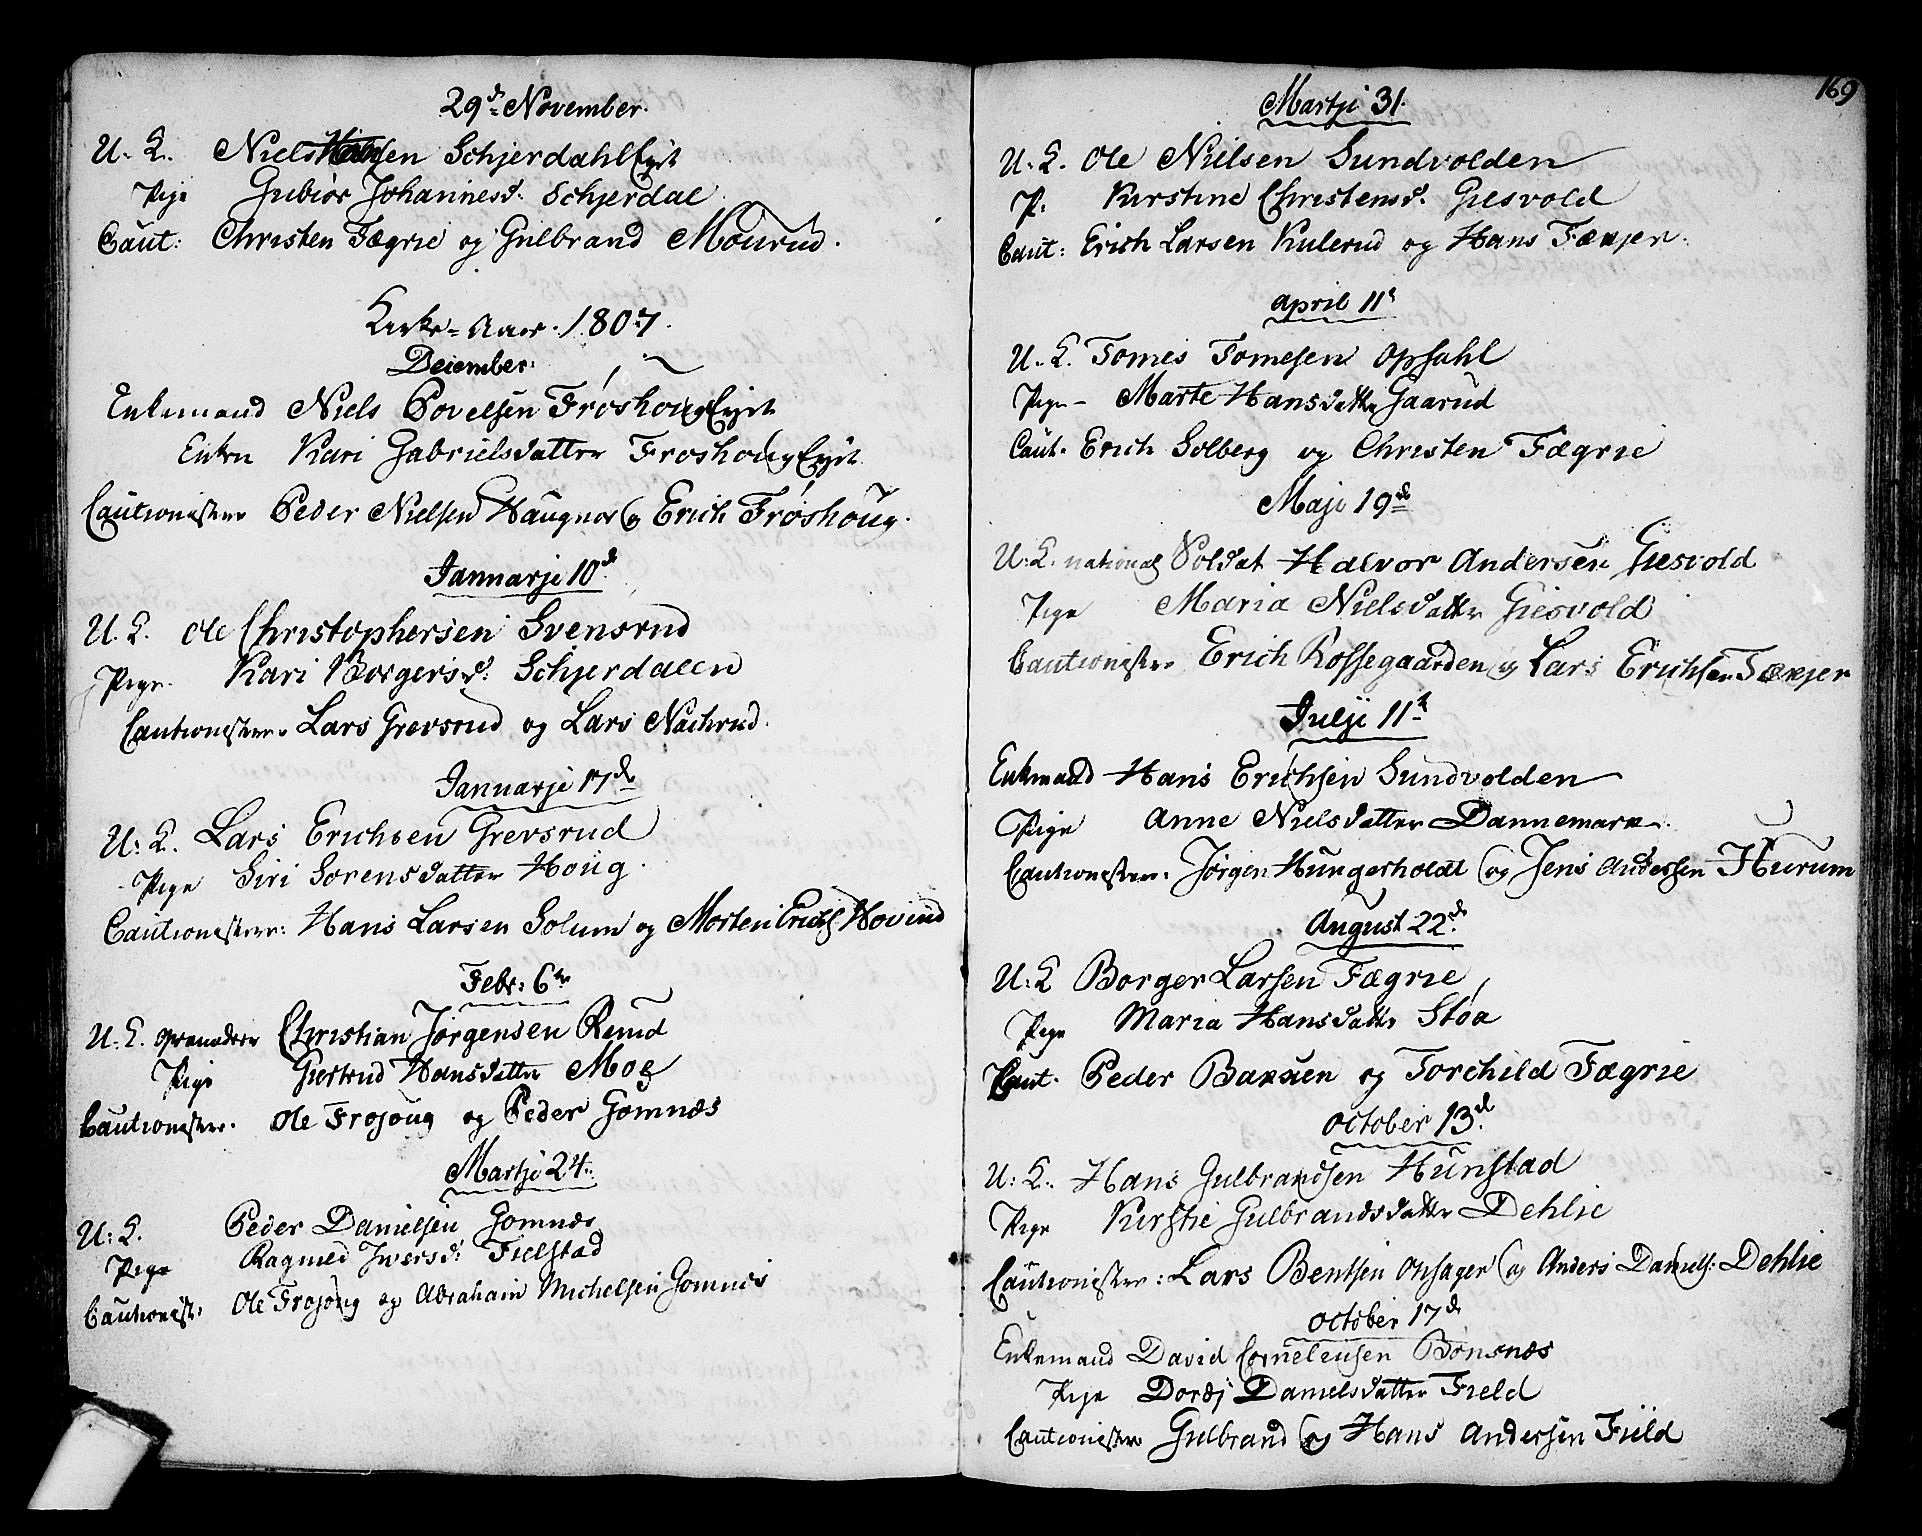 29de November.
U. K. Niels Schjerdahl Eyet
Pige Gubiør Johannesd. Schjerdal
Caut: Christen Fægrie og Gulbrand Mourud.
Kirke-Aar. 1807.
December:
Enkemand Niels Povelsen Frøshoug Eyet
Enken Kari Gabrielsdatter Froshoug Eyet
Cautionister Peder Nielsen Haugnor og Erich Frøshoug.
Januarji 10d.
U. K. Ole Christophersen Svensrud
Pige. Kari Borgersd: Schjerdalen
Cautionister. Lars Grevsrud og Lars Nachrud.
Januarji 17de
U: K. Lars Erichsen Grevsrud
Pige Siri Sorensdatter Houg.
Cautionisterr: Hans Larsen Solum og Morten Erichs Hovind
Febr: 6te
U. K. Christian Jørgensen Rund
Pige Giertrud Hansdatter Moe
Cautionister. Ole Frosoug og Peder Gomnæs
Martji 24.
U: K. Peder Danielsen Gomnæs
Pige Ragnild Iversd: Fielstad
Cautionist: Ole Frosoug og Abraham Michelsen Gomnes
169
Martji 31.
U. K. Ole Nielsen Sundvolden
P. Kirstine Christensd. Giesvold
Caut: Erich Larsen Kulerud og Hans Fæxjer.
April 11t
U. K. Tomes Tomesen Opsahl
Pige- Marte Hansdatter Gaarud
Caut. Erich Solberg og Christen Fægrie
Maji 19de
U: K. national Soldat Halvor Andersen Giesvold
Pige Maria Nielsdatter Giesvold
Cautionister Erich Rossegaarden og Lars Erichsen Fæxjer
Julji 11t
Enkmand Hans Erichsen Sundvolden
Pige Anne Nielsdatter Dannemark
Cautionister. Jørgen Hungerholdt og Jens Andersen Hurum
August 22d.
U. K Borger Larsen Fægrie
Pige Maria Hansdatter Støa
Caut. Peder Baxsen og Torchild Fægrie
October 13d.
U: K. Hans Gulbrandsen Hunstad
Pige Kirstie Gulbrandsdatter Dehlie
Cautionister: Lars Bentsen Onsager og Anders Daniels: Dehlie
October 17d
Enkemand David Corneleusen Bonsnæs
Pige Doræj Danielsdatter Field
Cautionister Gulbrand og Hans Andersen Fiild